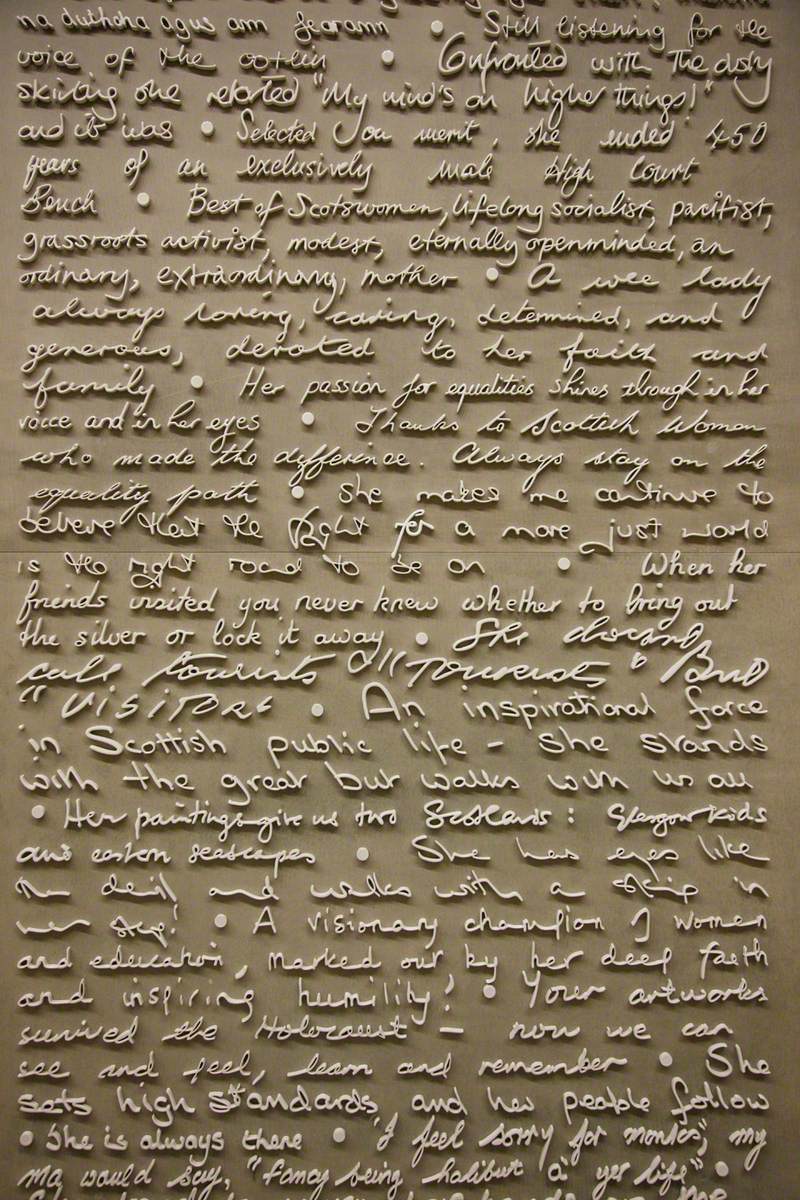 na dùthcha agus am fearann • Still listening for the
voice of the
• Confronted with the dusty
skirting she retorted "My mind's on higher things!"
and it was • Selected on merit, she ended 450
years of an exclusively male High Court
Bench • Best of Scotswomen, lifelong socialist, pacifist,
grassroots activist, modest, eternally openminded, an
ordinary, extraordinary, mother • A wee lady
always loving, caring, determined, and
generous, devoted to her faith and
family • Her passion for equalities shines through in her
voice and in her eyes • Thanks to Scottish Women
who made the difference. Always stay on the
equality path • She makes me continue to
believe that the fight for a more just world
is the right road to be on • When her
friends visited you never knew whether to bring out
the silver or lock it away • She doesnt
call tourists "Tourists" But
"VISITORS • An inspirational force
in Scottish public life - She stands
with the great but walks with us all
• Her paintings give us two Scotlands: Glasgow kids
and eastern seascapes • She has eyes like
the devil and walks with a skip in
her step! • A visionary champion of women
and education, marked out by her deep faith
and inspiring humility! • Your artworks
survived the Holocaust - now we can
see and feel, learn and remember • She
sets high standards, and her people follow
• She is always there • 'I feel sorry for monks', my
ma would say, "fancy being halibut a' yer life" •